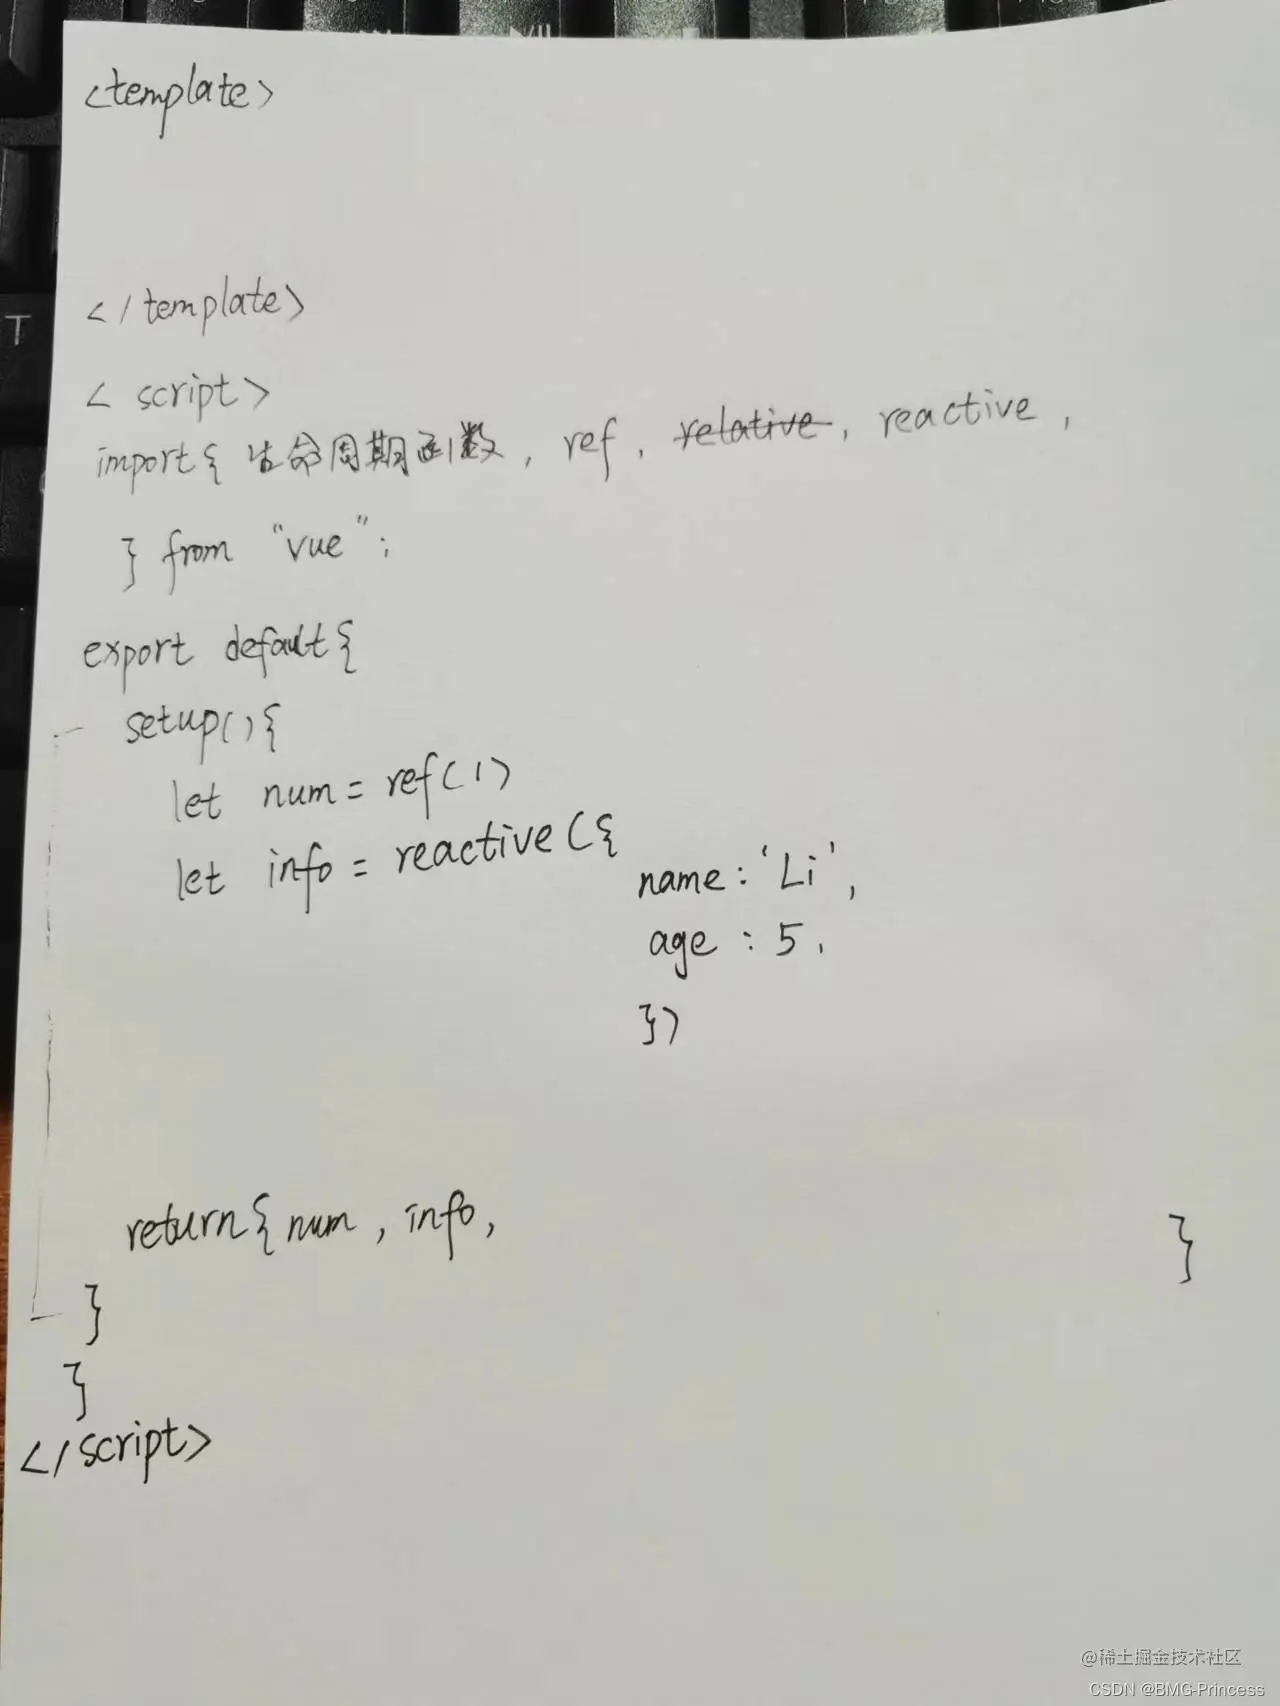 <template>
</template>
< script>
import{ 生命周期函数, ref, relative, reactive,
} from "vue";
export default{
setup(){
let num = ref(1)
let info = reactive({
name:'Li',
age : 5,
})
return{num, info, }
}
}
</script>
T
@稀土掘金技术社区
CSDN @BMG-Princess